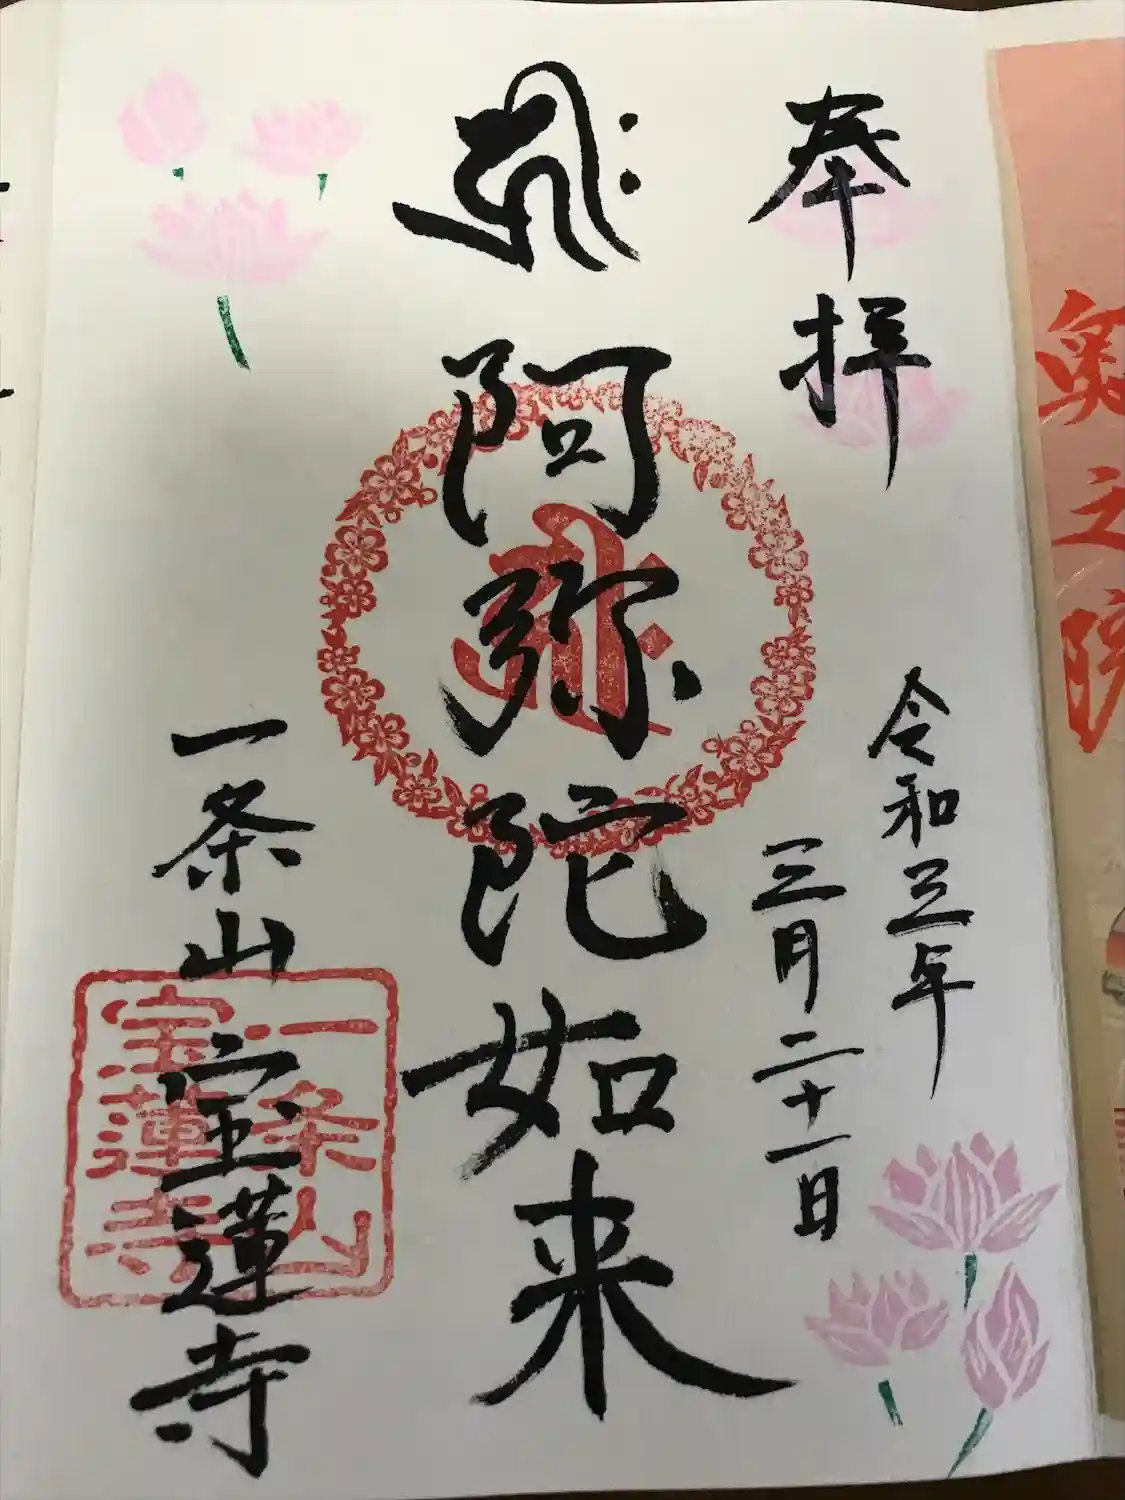 奉拝
令和三年
三月二十一日
阿弥陀如来
一条山 宝蓮寺
一条山
宝蓮寺
奥之院